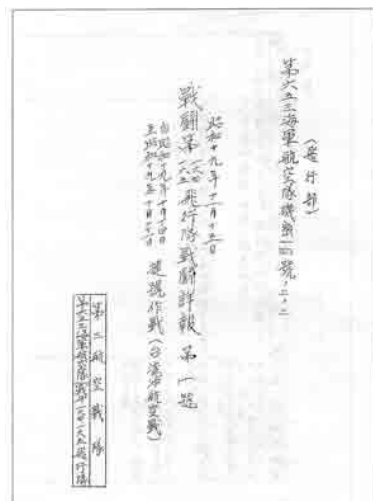 (飛行部)
第六五三海軍航空隊機密第 號ノ二ノ二
昭和十九年十一月十五日
戰闘第一六五飛行隊戰闘詳報 第一號
自昭和十九年十月十四日
至昭和十九年十月十六日
捷號作戰(台湾沖航空戰)
第三航空戰隊
第六五三海軍航空隊戰闘 一六五飛行隊